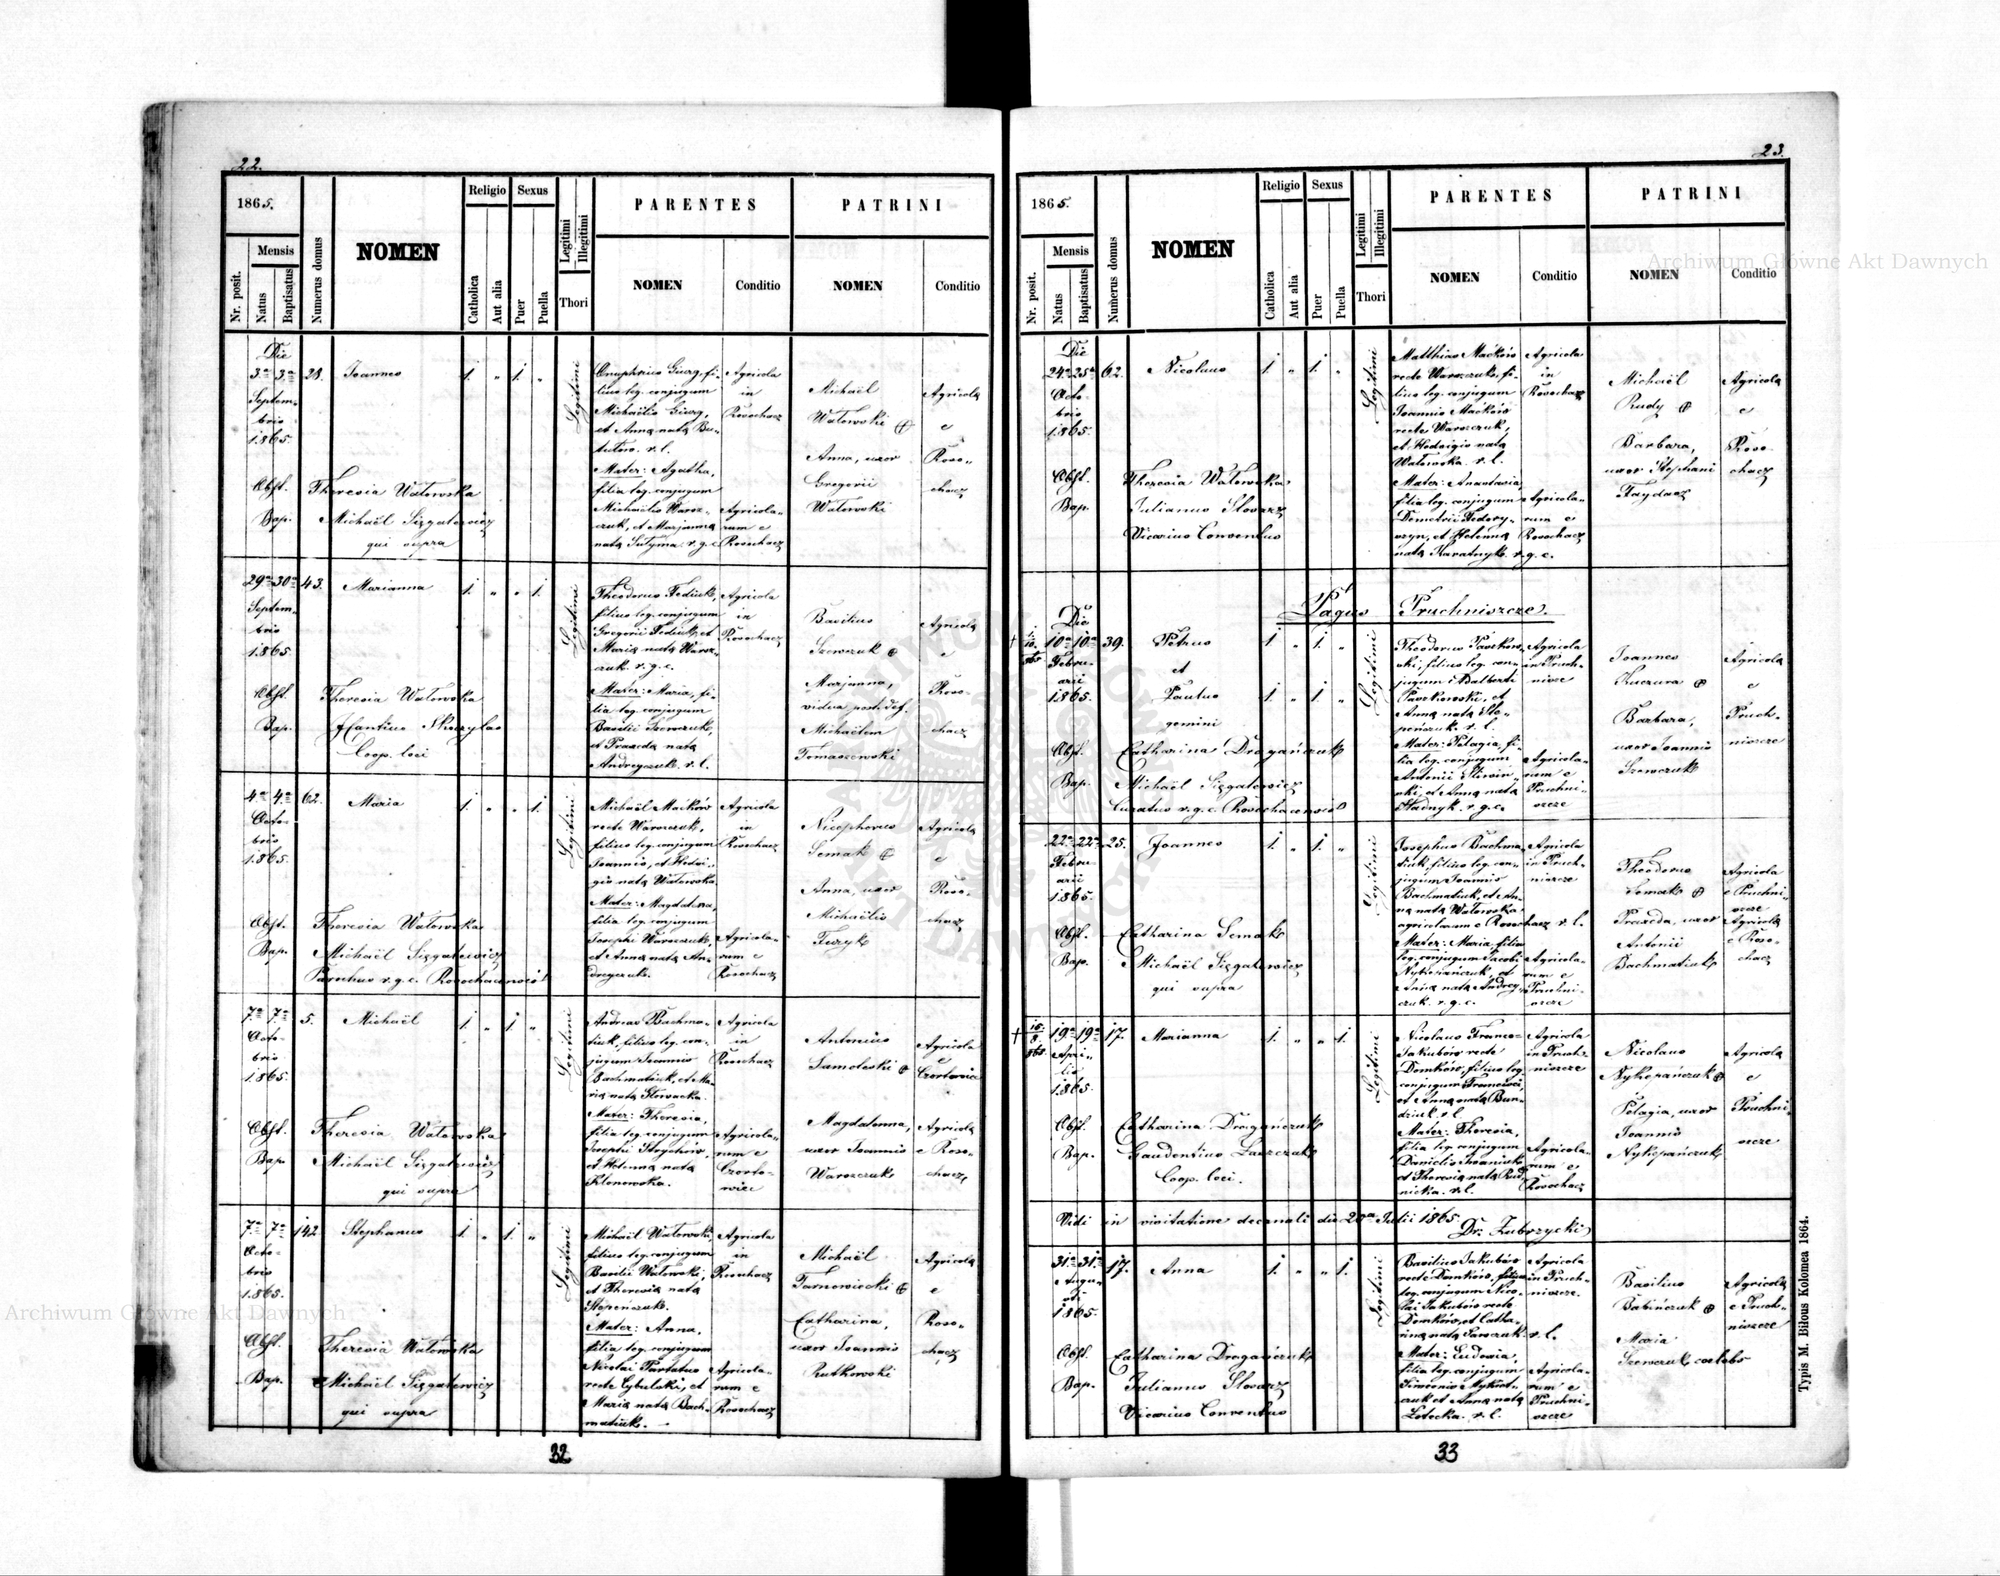 22.
1865.
Nr. posit.
Mensis
Natus
Baptisatus
Numerus domus
NOMEN
Religio
Catholica
Aut alia
Sexus
Puer
Puella
Legitimi
Illegitimi
Thori
PARENTES
NOMEN
Conditio
PATRINI
NOMEN
Conditio
Die
3a 3a 28. Joannes 1. " 1. "
Septem-
bris
1865.
Obst. Theresia Watowska
Bap. Michaël Sizgatewicz
qui supra
Legitimi
Onuphrius Giurg, fi-
lius leg. conjugum
Michaëlis Giurg,
et Anna nata
Mater: Agatha,
filia leg. conjugum
Michaëlis Warosz-
czuk, et Marjanna
nata Sutyma r. g. c.
Agricola
in
Rosochacz
Agricola-
rum e
Rosochacz
Michaël
Watowski
Anna, uxor
Gregorii
Watowski
Agricola
e
Roso-
chacz
29a 30a 43. Marianna 1. " " 1.
Septem-
bris
1865.
Obst. Theresia Watowska
Bap. JCantius Skuzylas
Coop. loci
Legitimi
Theodorus Fediuk,
filius leg. conjugum
Gregorii Fediuk, et
Maria nata Warosz-
czuk. r. g. c.
Mater: Maria, fi-
lia leg. conjugum
Basilii Szewczuk,
et Praxeda nata
Andreyczuk. r. l.
Agricola
in
Rosochacz
Basilius
Szewczuk
Marjanna,
vidua post def.
Michaëlem
Tomaszewski
Agricola
e
Roso-
chacz
4a 4a 62. Maria 1. " " 1.
Octo-
bris
1865.
Obst. Theresia Watowska
Bap. Michaël Sizgatewicz
Parochus r. g. c. Rosochacensis
Legitimi
Michaël Maćków
recte Waroszczuk,
filius leg. conjugum
Joannis, et Hedwi-
gis nata Watowska.
Mater: Magdalena,
filia leg. conjugum
Josephi Waroszczuk,
et Anna nata An-
dreyczuk.
Agricola
in
Rosochacz
Agricola-
rum e
Rosochacz
Nicephorus
Semak
Anna, uxor
Michaëlis
Furyk
Agricola
e
Roso-
chacz
7a 7a 5. Michaël 1. " 1. "
Octo-
bris
1865.
Obst. Theresia Watowska
Bap. Michaël Sizgatewicz
qui supra
Legitimi
Andreas Bachma-
tiuk, filius leg. con-
jugum Joannis
Bachmatiuk, et Ma-
ria nata Stowacka.
Mater: Theresia,
filia leg. conjugum
Josephi
et Helenna nata
Klonowska.
Agricola
in
Rosochacz
Agricola-
rum e
Czorto-
wiec
Antonius
Samoleski
Magdalenna,
uxor Joannis
Waroszczuk
Agricola
e
Czortowiec
Agricola
e Roso-
chacz
7a 7a 142. Stephanus 1. " 1. "
Octo-
bris
1865.
Obst. Theresia Watowska
Bap. Michaël Sizgatewicz
qui supra
Legitimi
Michaël Watowski,
filius leg. conjugum
Basilii Watowski,
et Theresia nata
Stepeńczuk.
Mater: Anna,
filia leg. conjugum
Nicolai
recte Cybulski, et
Maria nata Bach-
matiuk.
Agricola
in
Rosochacz
Agricola-
rum e
Rosochacz
Michaël
Tarnowiecki
Catharina,
uxor Joannis
Rutkowski
Agricola
e
Roso-
chacz
32
23.
1865.
Nr. posit.
Mensis
Natus
Baptisatus
Numerus domus
NOMEN
Religio
Catholica
Aut alia
Sexus
Puer
Puella
Legitimi
Illegitimi
Thori
PARENTES
NOMEN
Conditio
PATRINI
NOMEN
Conditio
Die
24a 25a 62. Nicolaus 1. " 1. "
Octo-
bris
1865.
Obst. Theresia Watowska
Bap. Julianus Slovarz
Vicarius Conventus
Legitimi
Matthias Maćków
recte Waroszczuk, fi-
lius leg. conjugum
Joannis Maćków
recte Waroszczuk,
et Hedvigis nata
Watowska. r. l.
Mater: Anastasia,
filia leg. conjugum
Demetrii Fedory-
szyn, et Helenna
nata Karatnyk. r. g. c.
Agricola
in
Rosochacz
Agricola-
rum e
Rosochacz
Michaël
Rudy
Barbara,
uxor Stephani
Haydacz
Agricola
e
Roso-
chacz
Pagus Pruchniszcze.
Die
10a 10a 39. Petrus 1. " 1. "
Febru- et
arii
1865. Paulus 1. " 1. "
gemini
Obst. Catharina Dragańczuk
Bap. Michaël Sizgatewicz
Curatus r. g. c. Rosochacensis
Legitimi
Theodorus Paszkow-
ski, filius leg. con-
jugum Adalberti
Paszkowski, et
Anna nata Ste-
peńczuk. r. l.
Mater: Pelagia, fi-
lia leg. conjugum
Antonii Sliwin-
ski, et Anna nata
Hladnyk. r. g. c.
Agricola
in Pruch-
niszcze
Agricola-
rum e
Pruchni-
szcze
Joannes
Kuczura
Barbara,
uxor Joannis
Szewczuk
Agricola
e
Pruch-
niszcze
22a 22a 25. Joannes 1. " 1. "
Febru-
arii
1865.
Obst. Catharina Semak
Bap. Michaël Sizgatewicz
qui supra
Legitimi
Josephus Bachma-
tiuk, filius leg. con-
jugum Joannis
Bachmatiuk, et An-
na nata Watowska
agricolarum e Rosochacz r. l.
Mater: Maria filia
leg. conjugum Jacobi
Nykepańczuk, et
Anna nata Andrey-
czuk. r. g. c.
Agricola
in Pruch-
niszcze
Agricola-
rum e
Pruchni-
szcze
Theodorus
Semak
Praxeda, uxor
Antonii
Bachmatiuk
Agricola
e Pruchni-
szcze
Agricola
e Roso-
chacz
19a 19a 17. Marianna 1. " " 1.
Apri-
lis
1865.
Obst. Catharina Dragańczuk
Bap. Gaudentius Laszczuk
Coop. loci.
Legitimi
Nicolaus Francs-
Jakubów recte
Domków, filius leg.
conjugum Francisci,
et Anna nata Bun-
dziuk. r. l.
Mater: Theresia,
filia leg. conjugum
Danielis Iwaniuk,
et Theresia nata Rud-
nicka. r. l.
Agricola
in Pruch-
niszcze
Agricola-
rum e
Rosochacz
Nicolaus
Nykepańczuk
Pelagia, uxor
Joannis
Nykepańczuk
Agricola
e
Pruchni-
szcze
Vidi in visitatione decanali die 20a Julii 1865.
Dr. Zubrzycki
31a 31a 17. Anna 1. " " 1.
Augu-
sti
1865.
Obst. Catharina Dragańczuk
Bap. Julianus Slovarz
Vicarius Conventus
Legitimi
Basilius Jakubów
recte Domków, filius
leg. conjugum Nico-
lai Jakubów recte
Domków, et Catha-
rina nata Sawczuk. r. l.
Mater: Ludovia,
filia leg. conjugum
Simeonis Mykiet-
czuk et Anna nata
Lotecka. r. l.
Agricola
in Pruch-
niszcze.
Agricola-
rum e
Pruchni-
szcze
Basilius
Babińczuk
Maria
Szewczuk coelebs
Agricola
e Pruch-
niszcze
33
Typis M. Biłous Kolomea 1864.
Archiwum Główne Akt Dawnych
Archiwum Główne Akt Dawnych
ARCHIWUM GŁÓWNE AKT DAWNYCH